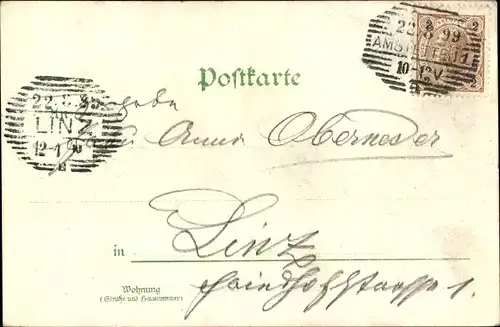 22.8.99
AMSTETTEN
10-12V
2
2
Postkarte
22.8.99
LINZ
12-1
Anna Oberneder
in Linz
Friedhofstrasse 1.
Wohnung
(Straße und Hausnummer)